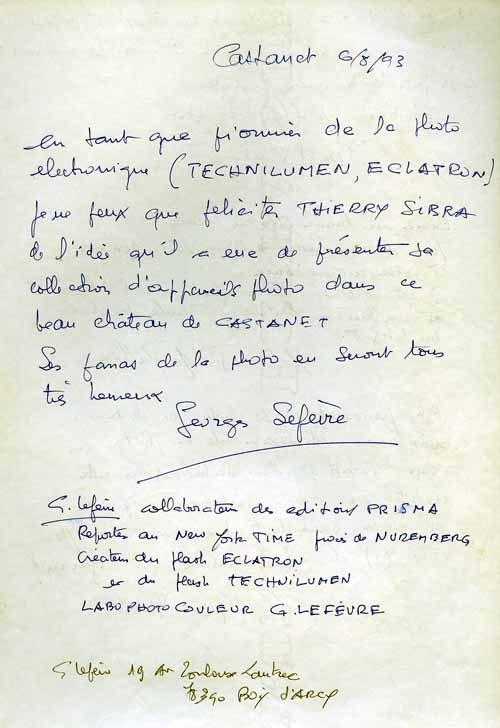 Castanet 6/8/93
en tant que pionnier de la photo
electronique (TECHNILUMEN, ECLATRON)
je ne peux que feliciter THIERRY SIBRA
de l'idée qu'il a eue de présenter sa
collection d'appareils photo dans ce
beau château de CASTANET
Les fanas de la photo en seront tous
très heureux
Georges Lefèvre
G. Lefèvre collaborateur des editions PRISMA
Reporter au NEW York TIME procès de NUREMBERG
Créateur du flash ECLATRON
et du flash TECHNILUMEN
LABO PHOTO COULEUR G. LEFÈVRE
G Lefèvre 19 Av Toulouse Lautrec
78390 BOIS d'ARCY